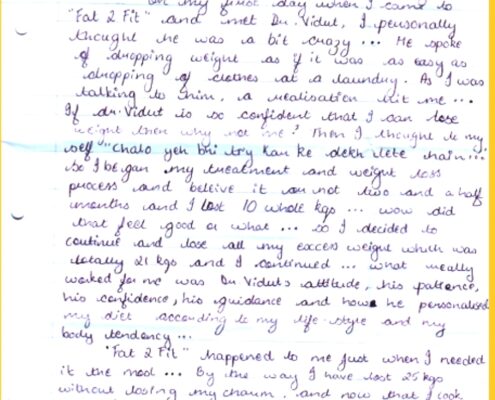 On my first day when I came to
"Fat 2 Fit" and met Dr. Vidut, I personally
thought he was a bit crazy ... He spoke
of dropping weight as if it was as easy as
dropping of clothes at a laundry. As I was
talking to him, a realisation hit me ...
If dr. Vidut is so confident that I can lose
weight then why not me? Then I thought to my
self "chalo yeh bhi try kar ke dekh lete hain...
So I began my treatment and weight loss
process and beleive it or not two and a half
months and I lost 10 whole kgs ... wow did
that feel good or what ... so I decided to
continue and lose all my excess weight which was
totally 21 kgs and I continued ... what really
worked for me was Dr Vidut's attitude, his patience,
his confidence, his guidance and how he personalised
my diet according to my life-style and my
body tendency ...
"Fat 2 Fit" happened to me just when I needed
it the most ... By the way I have lost 25 kgs
without losing my charm, and now that I look